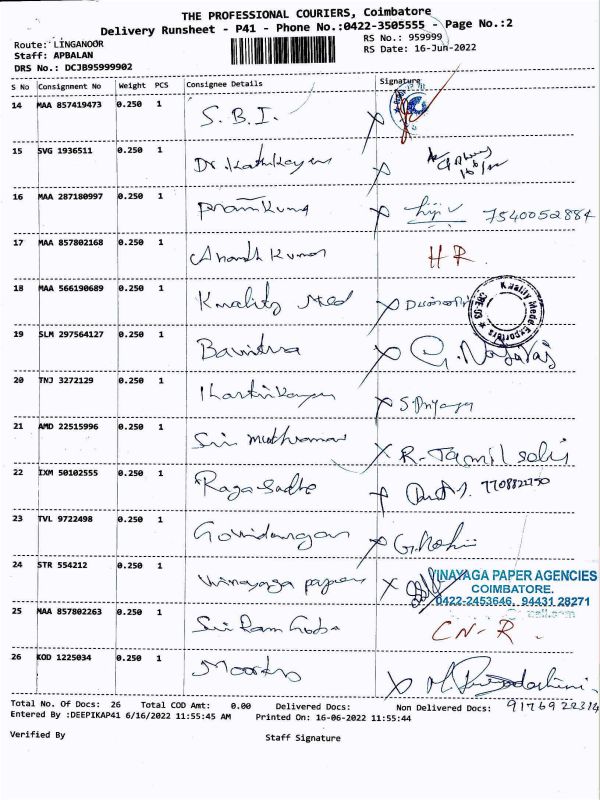 THE PROFESSIONAL COURIERS, Coimbatore
Delivery Runsheet - P41 - Phone No.:0422-3505555 - Page No.:2
Route: LINGANOOR
RS No.: 959999
Staff: APBALAN
RS Date: 16-Jun-2022
DRS No.: DCJB95999902
S No Consignment No Weight PCS Consignee Details Signature
14 MAA 857419473 0.250 1 S.B.I.
15 SVG 1936511 0.250 1 Dr. Karthikayen
16 MAA 287180997 0.250 1 Pram Kumar 7540052884
17 MAA 857802168 0.250 1 Anandh Kumar HR
18 MAA 566190689 0.250 1 Kwality Med
Kwality Medi Exporters
CBE-03
19 SLM 297564127 0.250 1 Bavithra G. Nagaraj
20 TNJ 3272129 0.250 1 Kharthikayen S. Priyanga
21 AMD 22515996 0.250 1 Sri R. Tamil selvi
22 IXM 50102555 0.250 1 Raga Sadhe
23 TVL 9722498 0.250 1 G. Rohini
24 STR 554212 0.250 1 Vinayaga papers
VINAYAGA PAPER AGENCIES
COIMBATORE.
0422-2453646, 94431 28271
25 MAA 857802263 0.250 1 Sri Ram CN-R.
26 KOD 1225034 0.250 1
Total No. Of Docs: 26 Total COD Amt: 0.00 Delivered Docs: Non Delivered Docs:
Entered By :DEEPIKAP41 6/16/2022 11:55:45 AM Printed On: 16-06-2022 11:55:44
Verified By Staff Signature